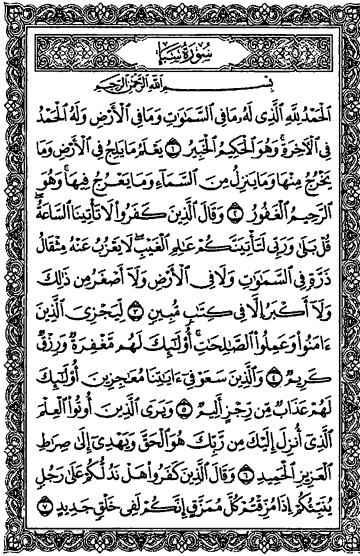 سُورَةُ سَبَأ
بِسْمِ ٱللَّهِ ٱلرَّحْمَٰنِ ٱلرَّحِيمِ
ٱلْحَمْدُ لِلَّهِ ٱلَّذِى لَهُۥ مَا فِى ٱلسَّمَٰوَٰتِ وَمَا فِى ٱلْأَرْضِ وَلَهُ ٱلْحَمْدُ
فِى ٱلْءَاخِرَةِ ۚ وَهُوَ ٱلْحَكِيمُ ٱلْخَبِيرُ ١ يَعْلَمُ مَا يَلِجُ فِى ٱلْأَرْضِ وَمَا
يَخْرُجُ مِنْهَا وَمَا يَنزِلُ مِنَ ٱلسَّمَآءِ وَمَا يَعْرُجُ فِيهَا ۚ وَهُوَ
ٱلرَّحِيمُ ٱلْغَفُورُ ٢ وَقَالَ ٱلَّذِينَ كَفَرُوا۟ لَا تَأْتِينَا ٱلسَّاعَةُ
قُلْ بَلَىٰ وَرَبِّى لَتَأْتِيَنَّكُمْ عَٰلِمِ ٱلْغَيْبِ ۖ لَا يَعْزُبُ عَنْهُ مِثْقَالُ
ذَرَّةٍ فِى ٱلسَّمَٰوَٰتِ وَلَا فِى ٱلْأَرْضِ وَلَآ أَصْغَرُ مِن ذَٰلِكَ
وَلَآ أَكْبَرُ إِلَّا فِى كِتَٰبٍ مُّبِينٍ ٣ لِّيَجْزِىَ ٱلَّذِينَ
ءَامَنُوا۟ وَعَمِلُوا۟ ٱلصَّٰلِحَٰتِ ۚ أُو۟لَٰٓئِكَ لَهُم مَّغْفِرَةٌ وَرِزْقٌ
كَرِيمٌ ٤ وَٱلَّذِينَ سَعَوْ فِىٓ ءَايَٰتِنَا مُعَٰجِزِينَ أُو۟لَٰٓئِكَ
لَهُمْ عَذَابٌ مِّن رِّجْزٍ أَلِيمٌ ٥ وَيَرَى ٱلَّذِينَ أُوتُوا۟ ٱلْعِلْمَ
ٱلَّذِىٓ أُنزِلَ إِلَيْكَ مِن رَّبِّكَ هُوَ ٱلْحَقَّ وَيَهْدِىٓ إِلَىٰ صِرَٰطِ
ٱلْعَزِيزِ ٱلْحَمِيدِ ٦ وَقَالَ ٱلَّذِينَ كَفَرُوا۟ هَلْ نَدُلُّكُمْ عَلَىٰ رَجُلٍ
يُنَبِّئُكُمْ إِذَا مُزِّقْتُمْ كُلَّ مُمَزَّقٍ إِنَّكُمْ لَفِى خَلْقٍ جَدِيدٍ ٧